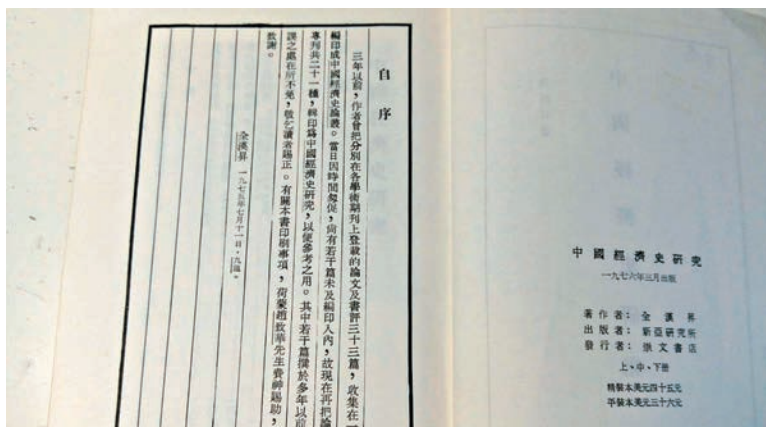 自序
三年以前，作者曾把分別在各學術期刊上登載的論文及書評三十三篇，收集在一
編印成中國經濟史論叢。當日因時間匆促，尚有若干篇未及編印入內，故現在再把論
專刊共二十一種，輯印爲中國經濟史研究，以便參考之用。其中若干篇撰於多年以前
誤之處在所不免，敬乞讀者賜正。有關本書印刷事項，荷蒙趙致華先生費神賜助，
致謝。
全漢昇 一九七五年七月十一日，九龍。
中國經濟史研究
一九七六年三月出版
著作者：全漢昇
出版者：新亞研究所
發行者：崇文書店
上、中、下册
精裝本美元四十五元
平裝本美元三十六元